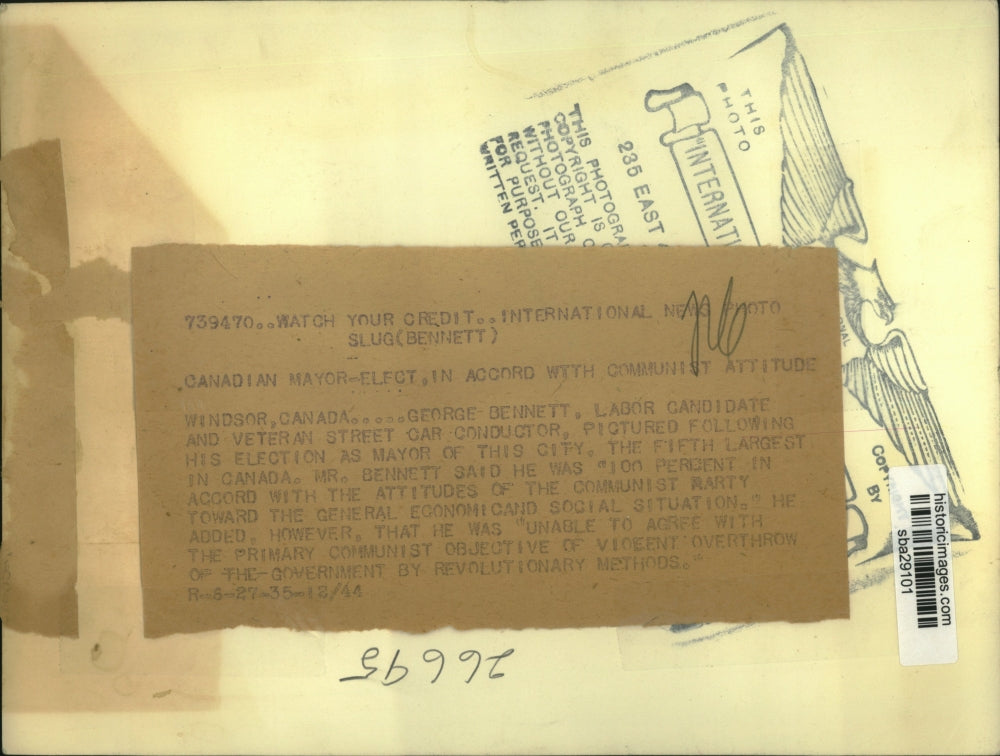 739470..WATCH YOUR CREDIT..INTERNATIONAL NEWS PHOTO
SLUG(BENNETT)
CANADIAN MAYOR-ELECT,IN ACCORD WITH COMMUNIST ATTITUDE
WINDSOR,CANADA.....GEORGE BENNETT, LABOR CANDIDATE
AND VETERAN STREET CAR CONDUCTOR, PICTURED FOLLOWING
HIS ELECTION AS MAYOR OF THIS CITY, THE FIFTH LARGEST
IN CANADA. MR. BENNETT SAID HE WAS "100 PERCENT IN
ACCORD WITH THE ATTITUDES OF THE COMMUNIST PARTY
TOWARD THE GENERAL ECONOMICAND SOCIAL SITUATION." HE
ADDED, HOWEVER, THAT HE WAS "UNABLE TO AGREE WITH
THE PRIMARY COMMUNIST OBJECTIVE OF VIOLENT OVERTHROW
OF THE GOVERNMENT BY REVOLUTIONARY METHODS."
R-8-27-35-12/44
THIS
PHOTO
"INTERNATI
235 EAST
THIS PHOTOGRA
COPYRIGHT IS
PHOTOGRAPH
WITHOUT OUR
REQUEST. IT
FOR PURPOSE
WRITTEN PER
BY
historicimages.com
sba29101
26695